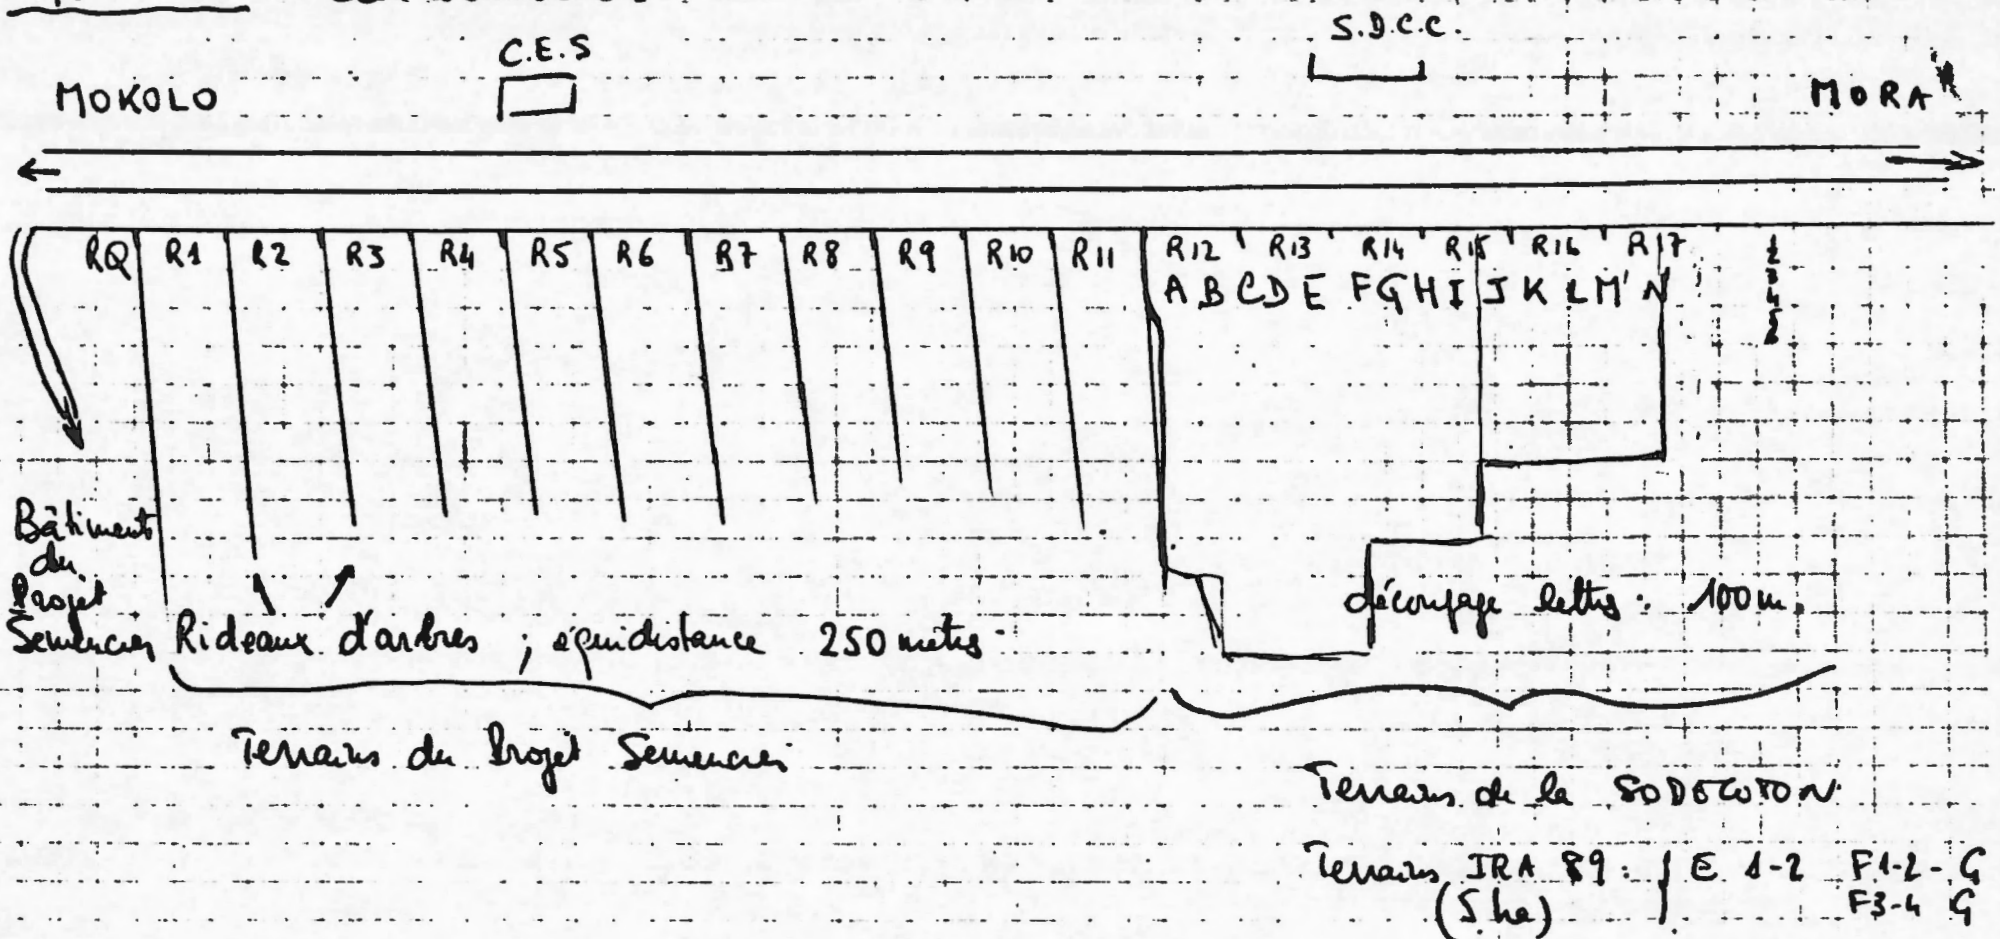 C.E.S
S.D.C.C.
MOKOLO
MORA
RQ R1 R2 R3 R4 R5 R6 R7 R8 R9 R10 R11 R12 R13 R14 R15 R16 R17
A B C D E F G H I J K L M N
1
2
3
4
5
Bâtiments
du
Projet
Semences
Rideaux d'arbres ; équidistance 250 mètres
découpage lettres : 100 m.
Terrains du Projet Semences
Terrains de la SODECOTON
Terrains IRA 89 : E 1-2 F1-2 - G
(5 ha) F3-4 G